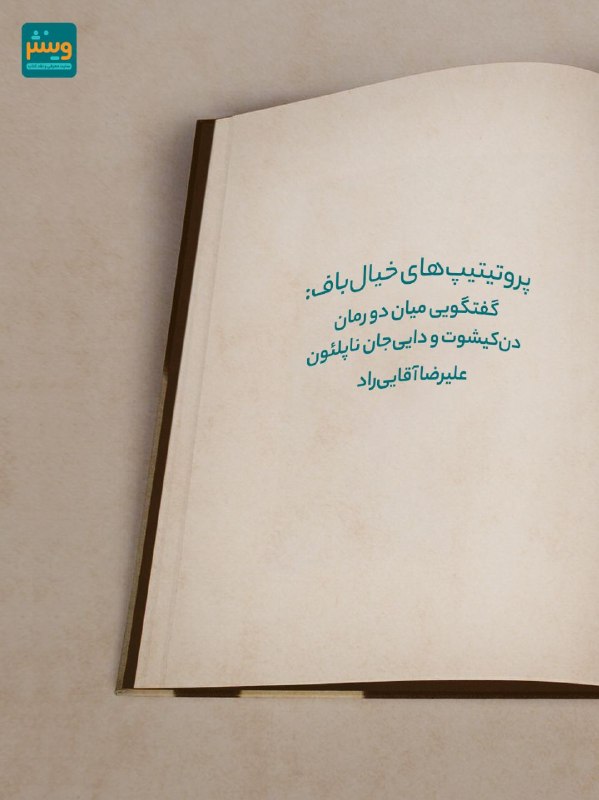 وینش
پروتیتیپ‌های خیال‌باف:
گفتگویی میان دو رمان
دن‌کیشوت و دایی‌جان ناپلئون
علیرضا آقایی‌راد